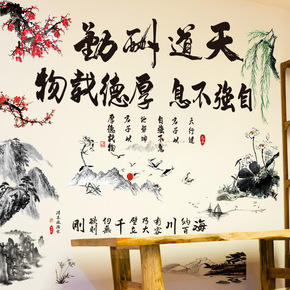 天道酬勤
自强不息 厚德载物
天行健
君子以
自强不息
地势坤
君子以
厚德载物
海纳百川有容乃大壁立千仞无欲则刚